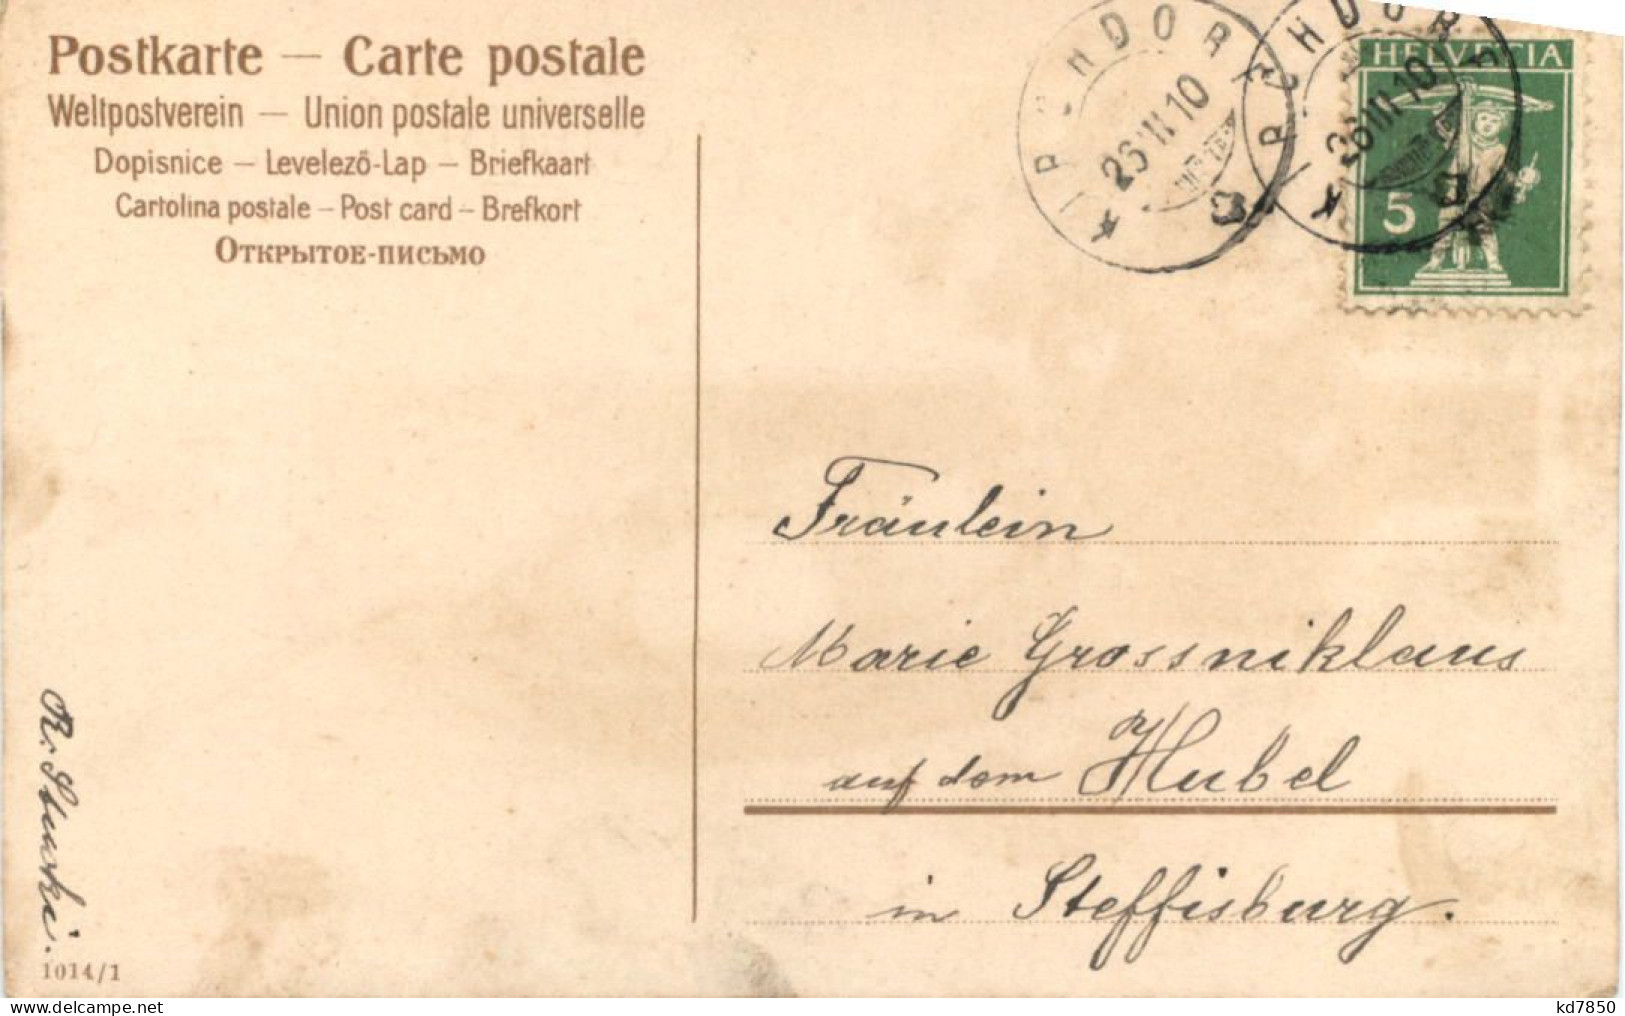 Postkarte — Carte postale
Weltpostverein — Union postale universelle
Dopisnice — Levelező-Lap — Briefkaart
Cartolina postale — Post card — Brefkort
Открытое-письмо
KIRCHDORF
26 III 10
KIRCHDORF
26 III 10
HELVETIA
5
Fräulein
Marie Grossniklaus
auf dem Hubel
in Steffisburg.
R. Stucki.
1014/1
kd7850